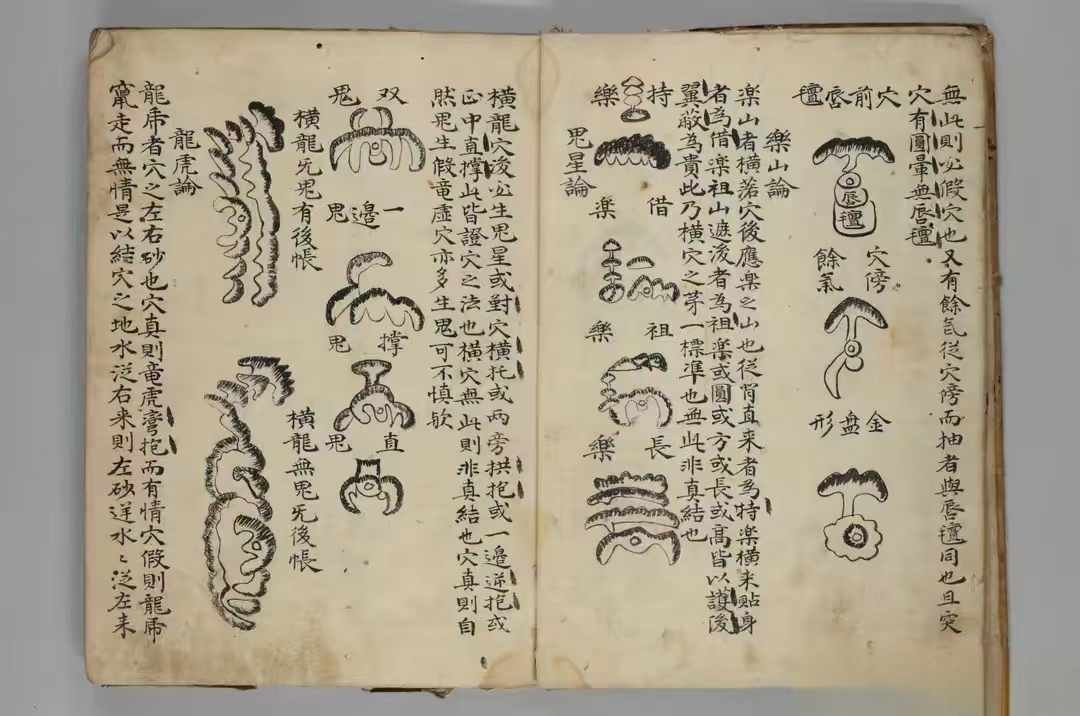 無此則必假穴也又有餘氣從穴傍而抽者與唇氊同也且突
穴有圓暈無唇氊
穴前唇氊
唇氊
穴傍
餘氣
金盘形
樂山論
楽山者横落穴後應楽之山也從背直来者為特楽横来貼身
者為借楽祖山遮後者為祖楽或圓或方或長或高皆以護後
翼蔽為貴此乃横穴之芽一標準也無此非真結也
持楽
借楽
祖楽
長楽
鬼星論
横龍穴後必生鬼星或對穴横托或两旁拱抱或一邉逆抱或
正中直撑此皆證穴之法也横穴無此則非真結也穴真則自
然鬼生假竜虚穴亦多生鬼可不慎欤
双鬼
一邉鬼
撑鬼
直鬼
横龍旡鬼有後帳
横龍無鬼旡後帳
龍虎論
龍虎者穴之左右砂也穴真則竜虎灣抱而有情穴假則龍虎
竄走而無情是以結穴之地水從右来則左砂逆水〻從左来